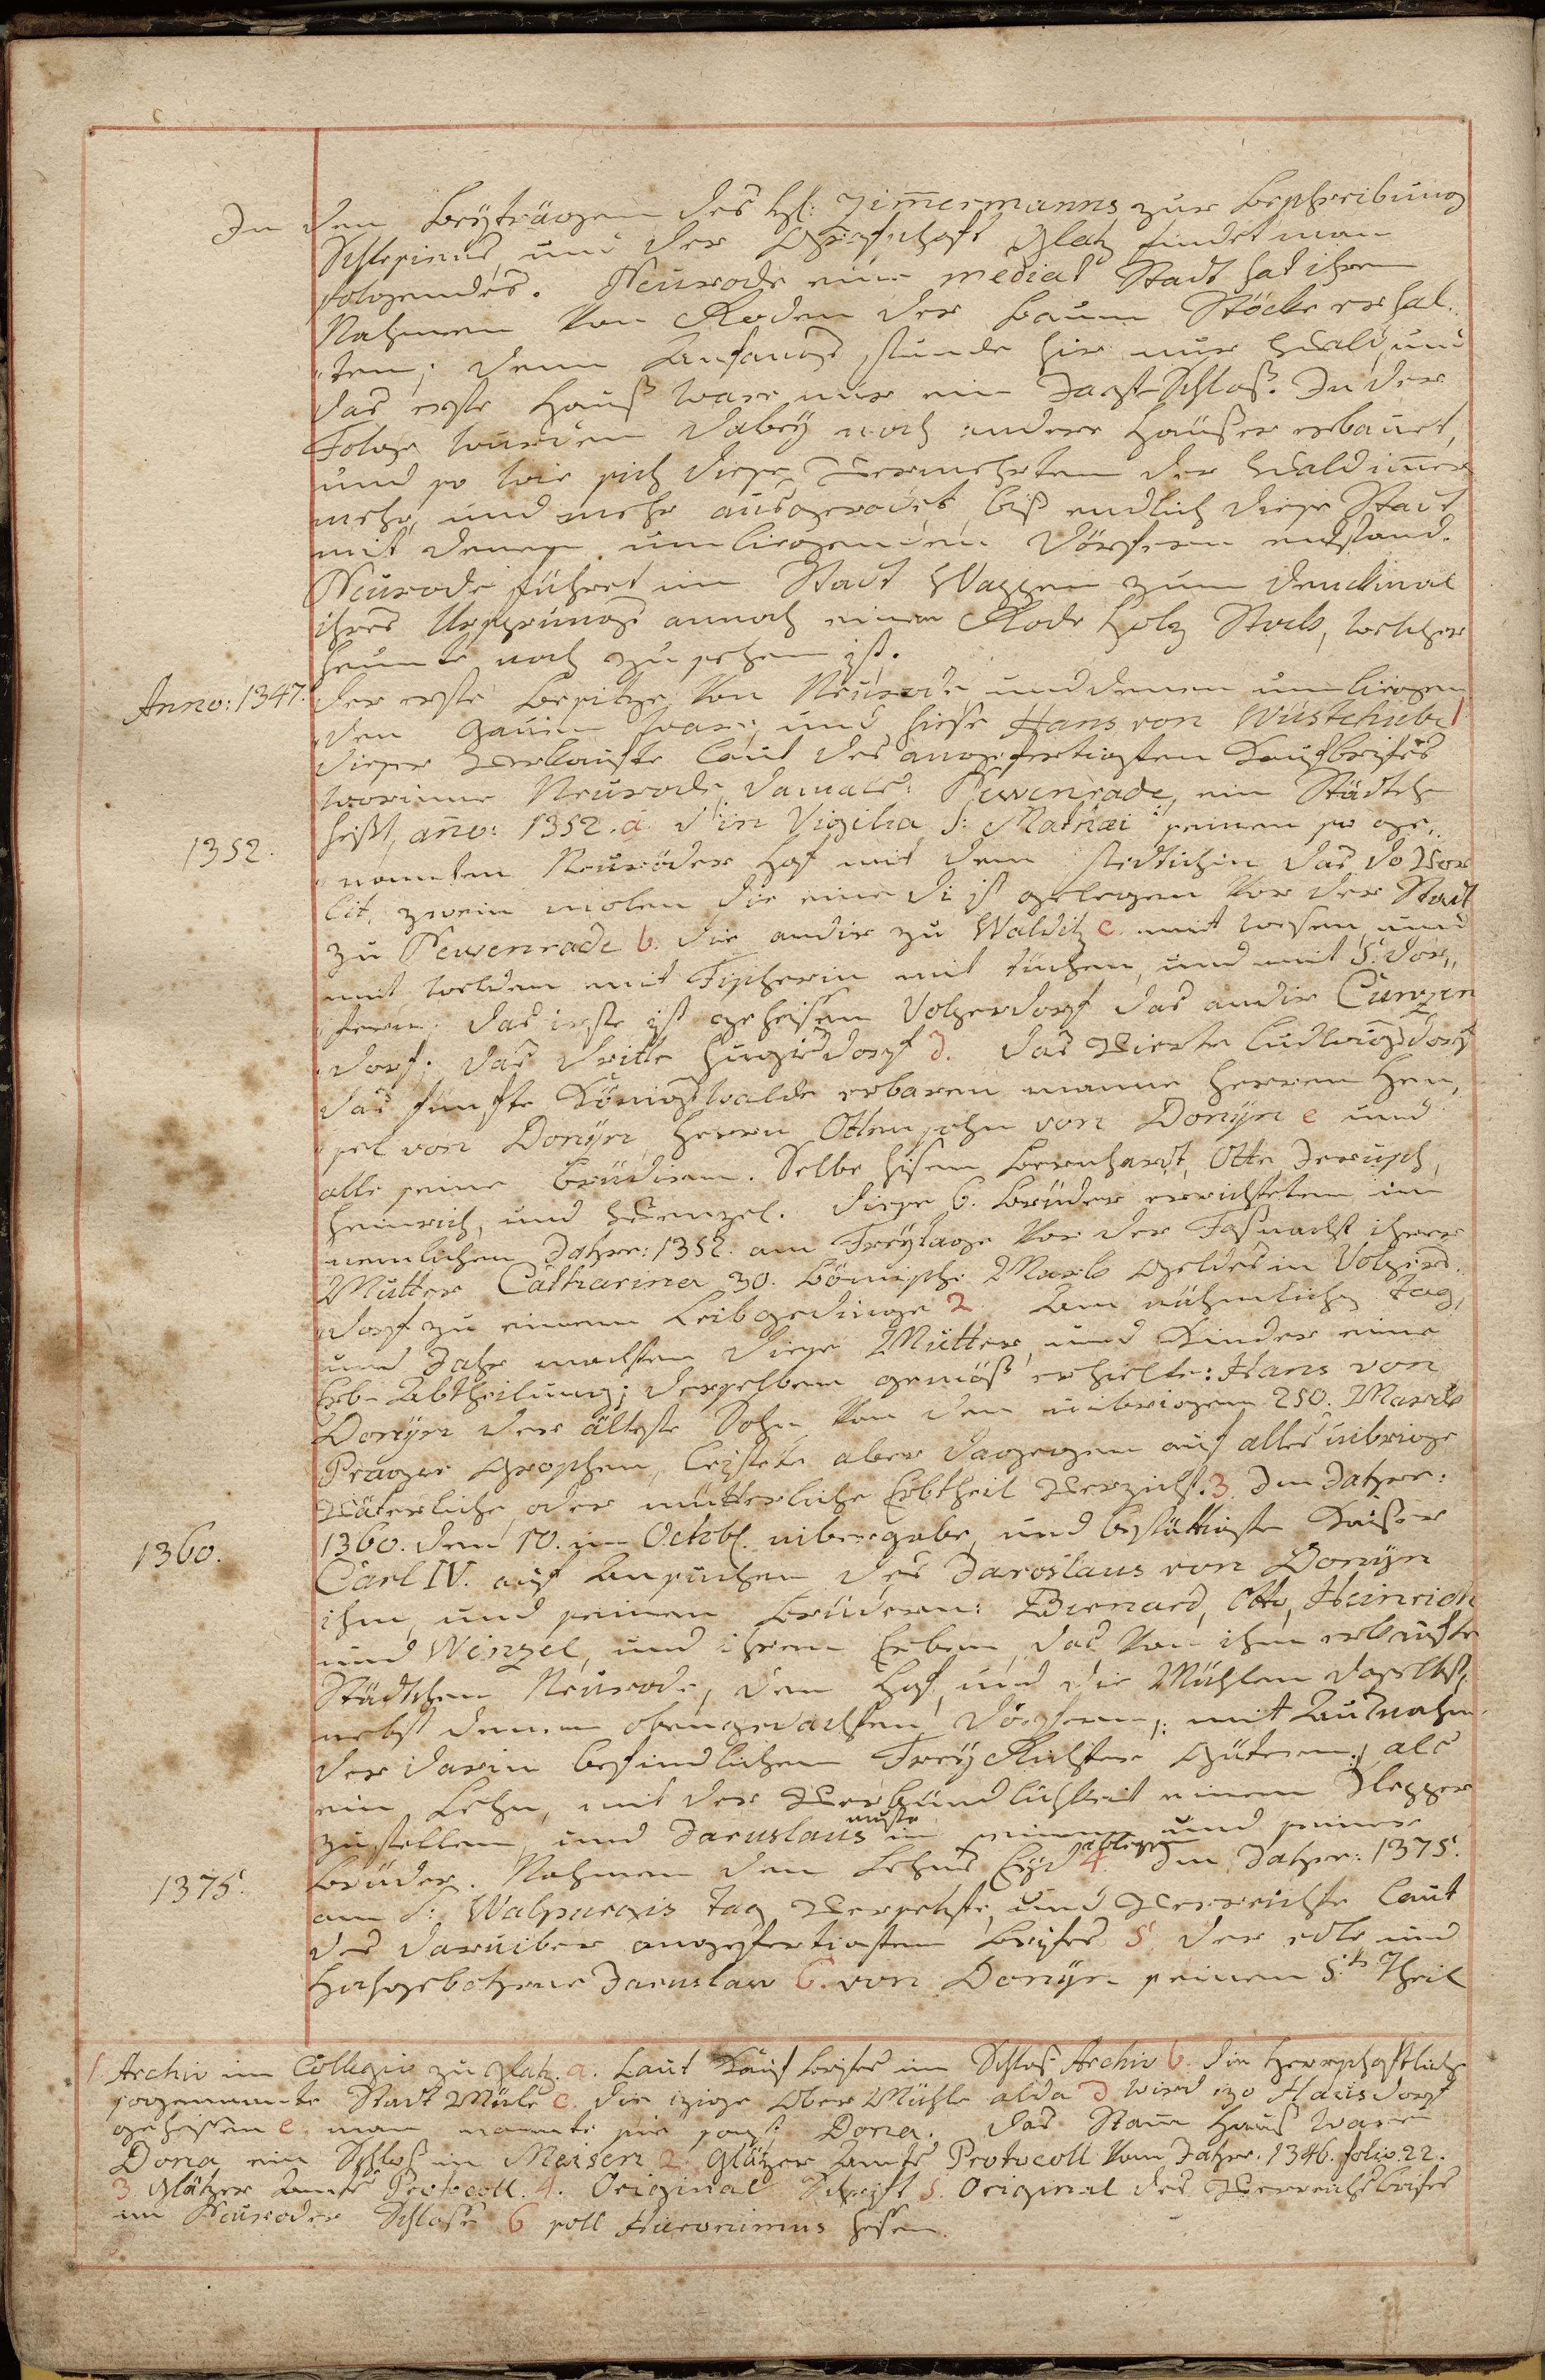 In den Beyträgen des H: Zim̄ermanns zur Beschreibung
Schlesiens und der Grafschaft Glatz findet man
folgendes. Neurode eine mediat Stadt hat ihren
Nahmen von Roden der Baum Stöcke erhal-
„ten; denn Anfangs stunde hir nur Wald, und
das erste Hauß ware nur ein Jagt-Schloß. In der
Folge wurden dabey noch andere Häußer erbauet,
und so wie sich diese Vermehrten der Wald im̄er
mehr, und mehr ausgerodet, biß endlich diese Stadt
mit denen umliegenden Dörfern entstand.
Neurode führet im Stadt Wappen zum Denckmal
ihres Ursprungs annoch einen Rode Holz Stock, welcher
heunte noch zu sehen ist.
Anno: 1347. Der erste Besitze von Neurode und denen umliegen
„den Gauen ware, und hiesse Hans von Wüstehube 1
dieser Verkaufte laut des angefertigten Kaufbrifes
worinne Neurode damals: Newenrade, ein Städtch
heißt, an̄o: 1352. a. d'in Vigilia S: Mathæi seinen so ge„
1352.
„nannten Neuroder Hof mit dem stetichin das do Vor
lit, zwein molen die eine di ist gelegen vor der Stadt
zu Newenrade b. die andir zu Walditz c. mit wesen und
mit welden mit Fischerin mit tüchen, und mit 5. Dör„
„fern. das irste ist geheisen Volperdorf das andir Cunzen
„dorf; das dritte Hugisdorf d. das Vierte Ludwigsdorf
das fünfte Königswalde erbaren manne Herren Hen„
„sel von Donÿn, Herrn Otten sohn von Donÿn e und
alle seine Brüdirn. Selbe hisen Bernhardt, Otte, Jerusch,
Heinrich, und Wenzel. Diese 6. Brüder errichteten im
nemlichen Jahre: 1352. am Freytage vor der Faßnacht ihrer
Mutter Catharina 30. Bömisch: Mark Geldes in Volpers
„dorf zu einem Leibgedinge 2 Am nähmlichen Tag,
und Jahr machten diese Mutter, und Kinder eine
Erb-Abtheilung; derselben gemäß erhielte: Hans von
Donÿn der älteste Sohn von den uibrigen 250. Marck
Prager Groschen, leistete aber dagegen auf alles uibrige
Väterliche, oder mütterliche Erbtheil Verzicht. 3. Im Jahre:
1360.
1360. den 10. in Octob. uibergabe, und bestättigte Kaiser
Carl IV. auf Ansuchen des Jaroslaus von Donÿn
ihm, und seinen Brüdern: Bernard, Otto, Heinrich
und Wenzel, und ihren Erben, das von ihm erkaufte
Städtchen Neurode, den Hof, und die Mühlen daselbst,
nebst denen obengedachten Dörfern, mit Ausnahm
der darin befindlichen Frey Richter Gütern, als
ein Lehn, mit der Verbündlichkeit einen Klepper
zustellen, und Jaruslaus muste in seinem und seiner
Brüder Nahmen den Lehns Eyd ablegen 4. Im Jahre: 1375.
1375.
am S: Walpurgis Tag Versetzte, und Verreichte laut
des daruiber angefertigten Brifes 5 der edle und
Hochgebohrne Jaruslaw 6. von Donÿn seinen 5.ten Theil
1 Archiv im Collegio zu Glatz. a. Laut Kauf Brifes im Schloß Archiv b. die Herrschaftliche
sogenannte Stadt Müle c. die izige Ober Mühle alda d wird izo Hausdorf
geheissen e. man nannte sie sonst Dona. Das Stam̄ Hauß ware
Dona ein Schloß in Meisen 2 Glätzer Amts Protocoll vom Jahre. 1346. folio 22.
3 Glätzer Amts Protocoll. 4. Original Schrift 5. Original des Verreichsbrifes
im Neuroder Schlosse 6 soll Hieronimus heisen.